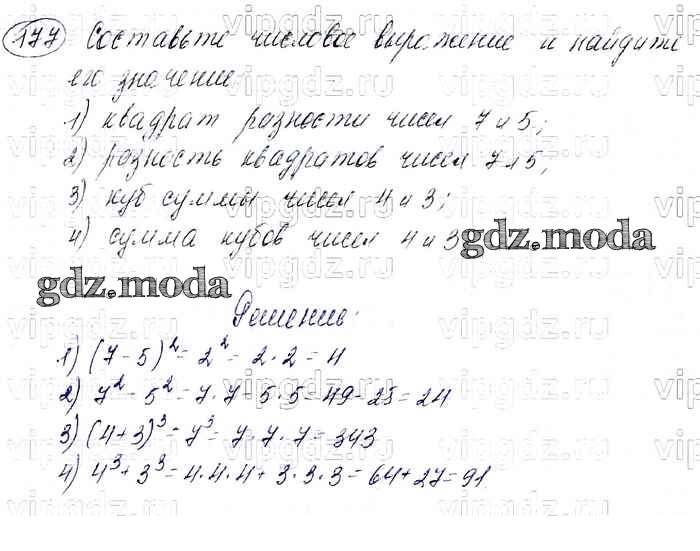 177 Составьте числовое выражение и найдите
его значение
1) квадрат разности чисел 7 и 5;
2) разность квадратов чисел 7 и 5;
3) куб суммы чисел 4 и 3;
4) сумма кубов чисел 4 и 3
gdz.moda
gdz.moda
Решение:
1) (7-5)² = 2² = 2·2 = 4
2) 7² - 5² = 7·7 - 5·5 = 49 - 25 = 24
3) (4+3)³ = 7³ = 7·7·7 = 343
4) 4³ + 3³ = 4·4·4 + 3·3·3 = 64 + 27 = 91